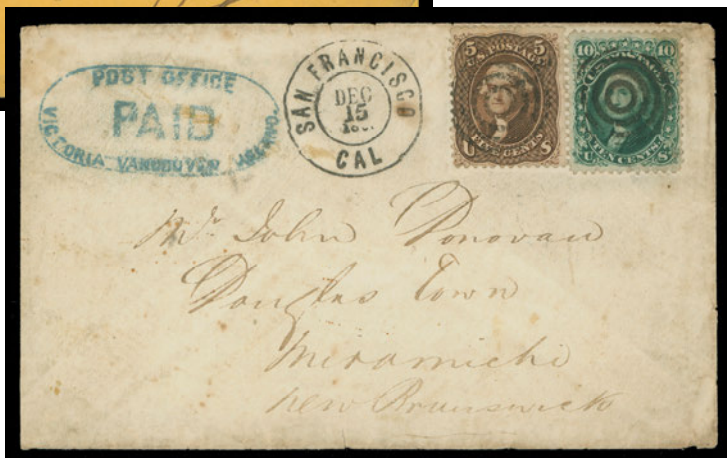 POST OFFICE
PAID
VICTORIA VANCOUVER ISLAND.
SAN FRANCISCO
DEC
15
CAL
5 5
U.S. POSTAGE
FIVE CENTS
U S
10 10
U.S. POSTAGE
TEN CENTS
U S
Mr. John Donovan
Douglas Town
Miramichi
New Brunswick